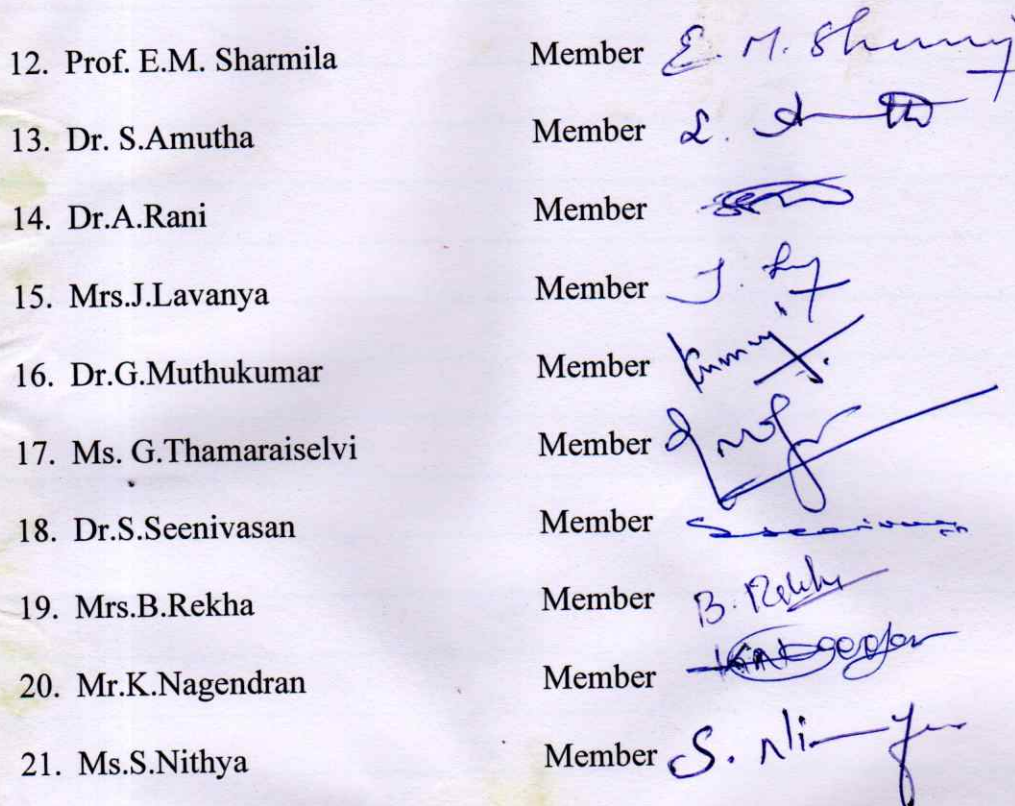 12. Prof. E.M. Sharmila Member E. M. Sharmi
13. Dr. S.Amutha Member
14. Dr.A.Rani Member
15. Mrs.J.Lavanya Member J.
16. Dr.G.Muthukumar Member Kumar
17. Ms. G.Thamaraiselvi Member
18. Dr.S.Seenivasan Member Sseenivasan
19. Mrs.B.Rekha Member B. Rekha
20. Mr.K.Nagendran Member
21. Ms.S.Nithya Member S.